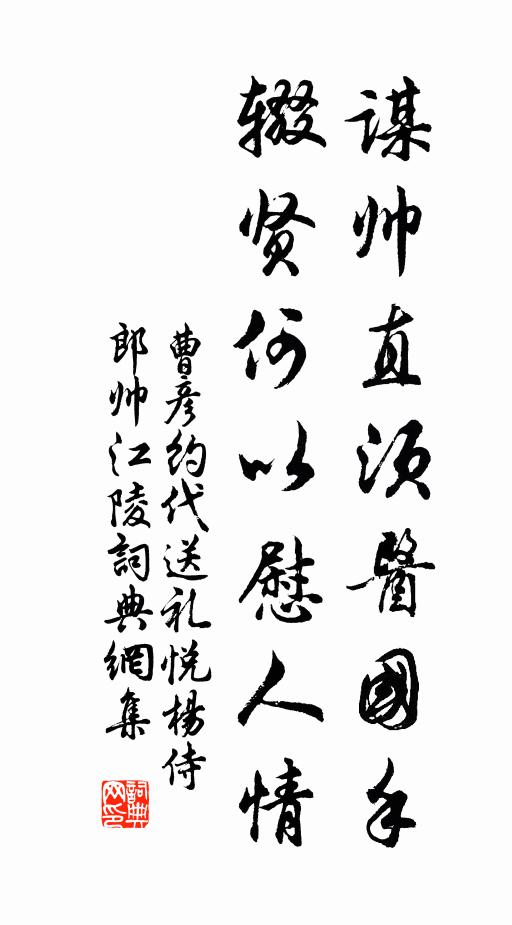 谋帅直须醫國手
辍贤何以慰人情
曹彦约代送礼悦楊侍
郎帅江陵詞典網集
詞典网印